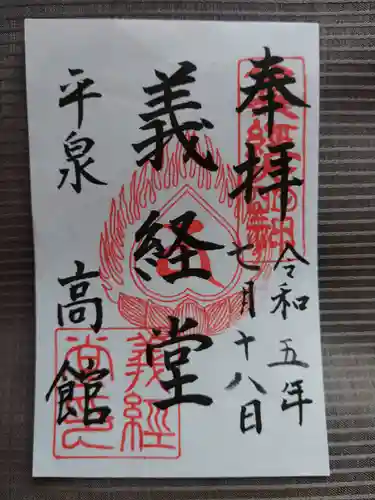 奉拝
令和五年
七月十八日
義経堂
平泉
高館
義経
堂印